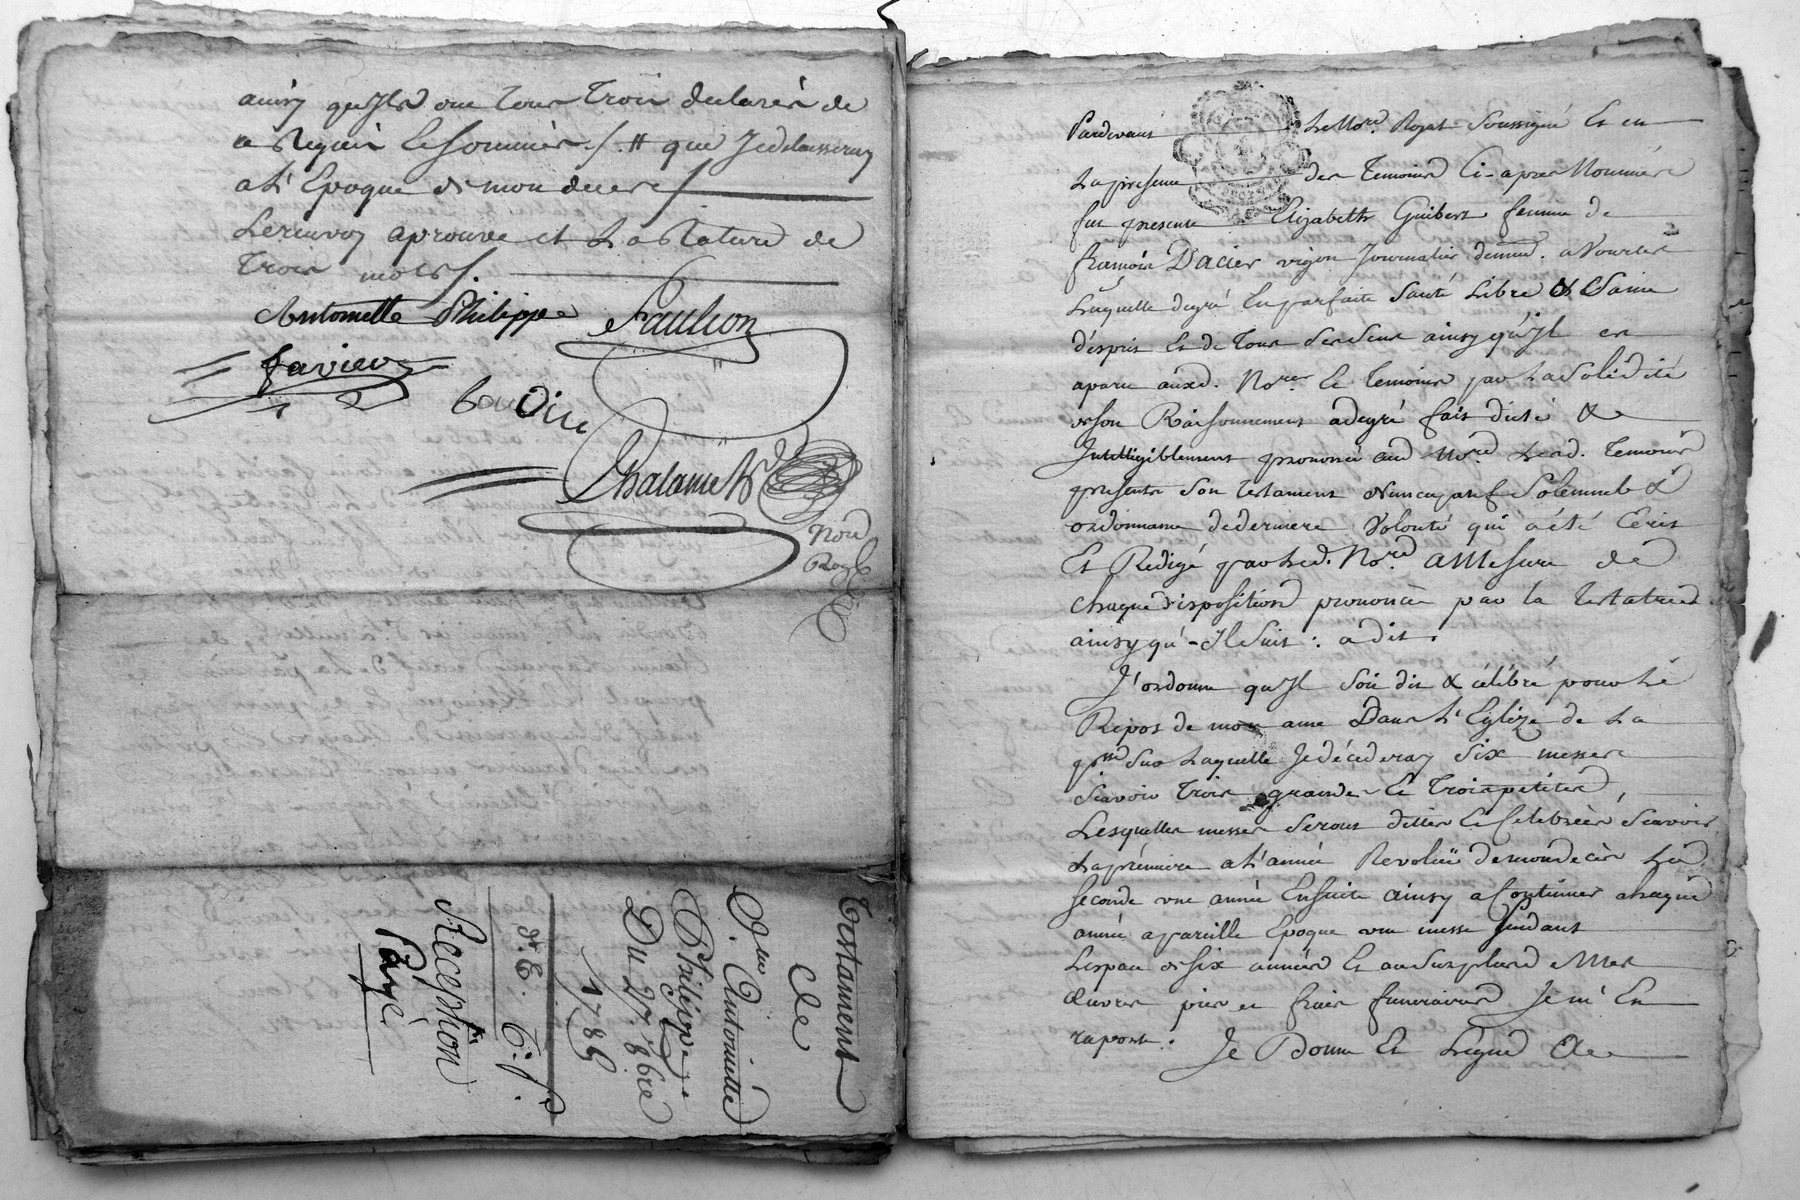 ainsy qu'Ils ont tous trois declarés de
ce Requis Et sommés ./. # que Je delaisseray
a L'Epoque de mon deces /
Le renvoy aprouvé et La Rature de
trois mots /.
Antoinette Philippe Fraulion
Favier
baudin
Chalamet
No.re
Royal
Testament
de
Antoinette
Philippe
Du 27. 8bre
1786
d. E. 6.
Reception
Payé
Pardevant Le No.re Royal Soussigné Et en
La presence des Temoins Ci-apres Nommés
fut presente Elizabeth Guibert femme de
francois Dacier vigon Journalier
Laquelle degré En parfaite Santé Libre & Saine
d'esprit Et de Tous Ses Sens ainsy qu'Il en
aparu auxd. No.re Et Temoins par La Solidité
de son Raisonnement adegré fait dicté &
Intelligiblement prononcé aud No.re Et aud. Temoins
presents Son Testament Nuncupatif Solemnel &
ordonnance de derniere Volonté qui a été Ecrit
Et Redigé par Led. No.re a Mesure de
chaque disposition prononcée par la Testatrice
ainsy qu'-Il Suit : a dit.
J'ordonne qu'Il Soit dit & célébré pour Le
Repos de mon ame Dans L'Eglize de La
p.sse Sur Laquelle Je décéderay Six messes
Scavoir Trois grandes Et Trois petites,
Lesquelles messes Seront dittes Et Celebrées Scavoir
La premiere a L'année Revolue de mon deces La
Seconde une année Ensuite ainsy a Continuer chaque
année a pareille Epoque une messe pendant
L'espace de Six années Et au Surplus Mes
Œuvres pies et frais funeraires Je m'En
raporte. Je Donne Et Legue